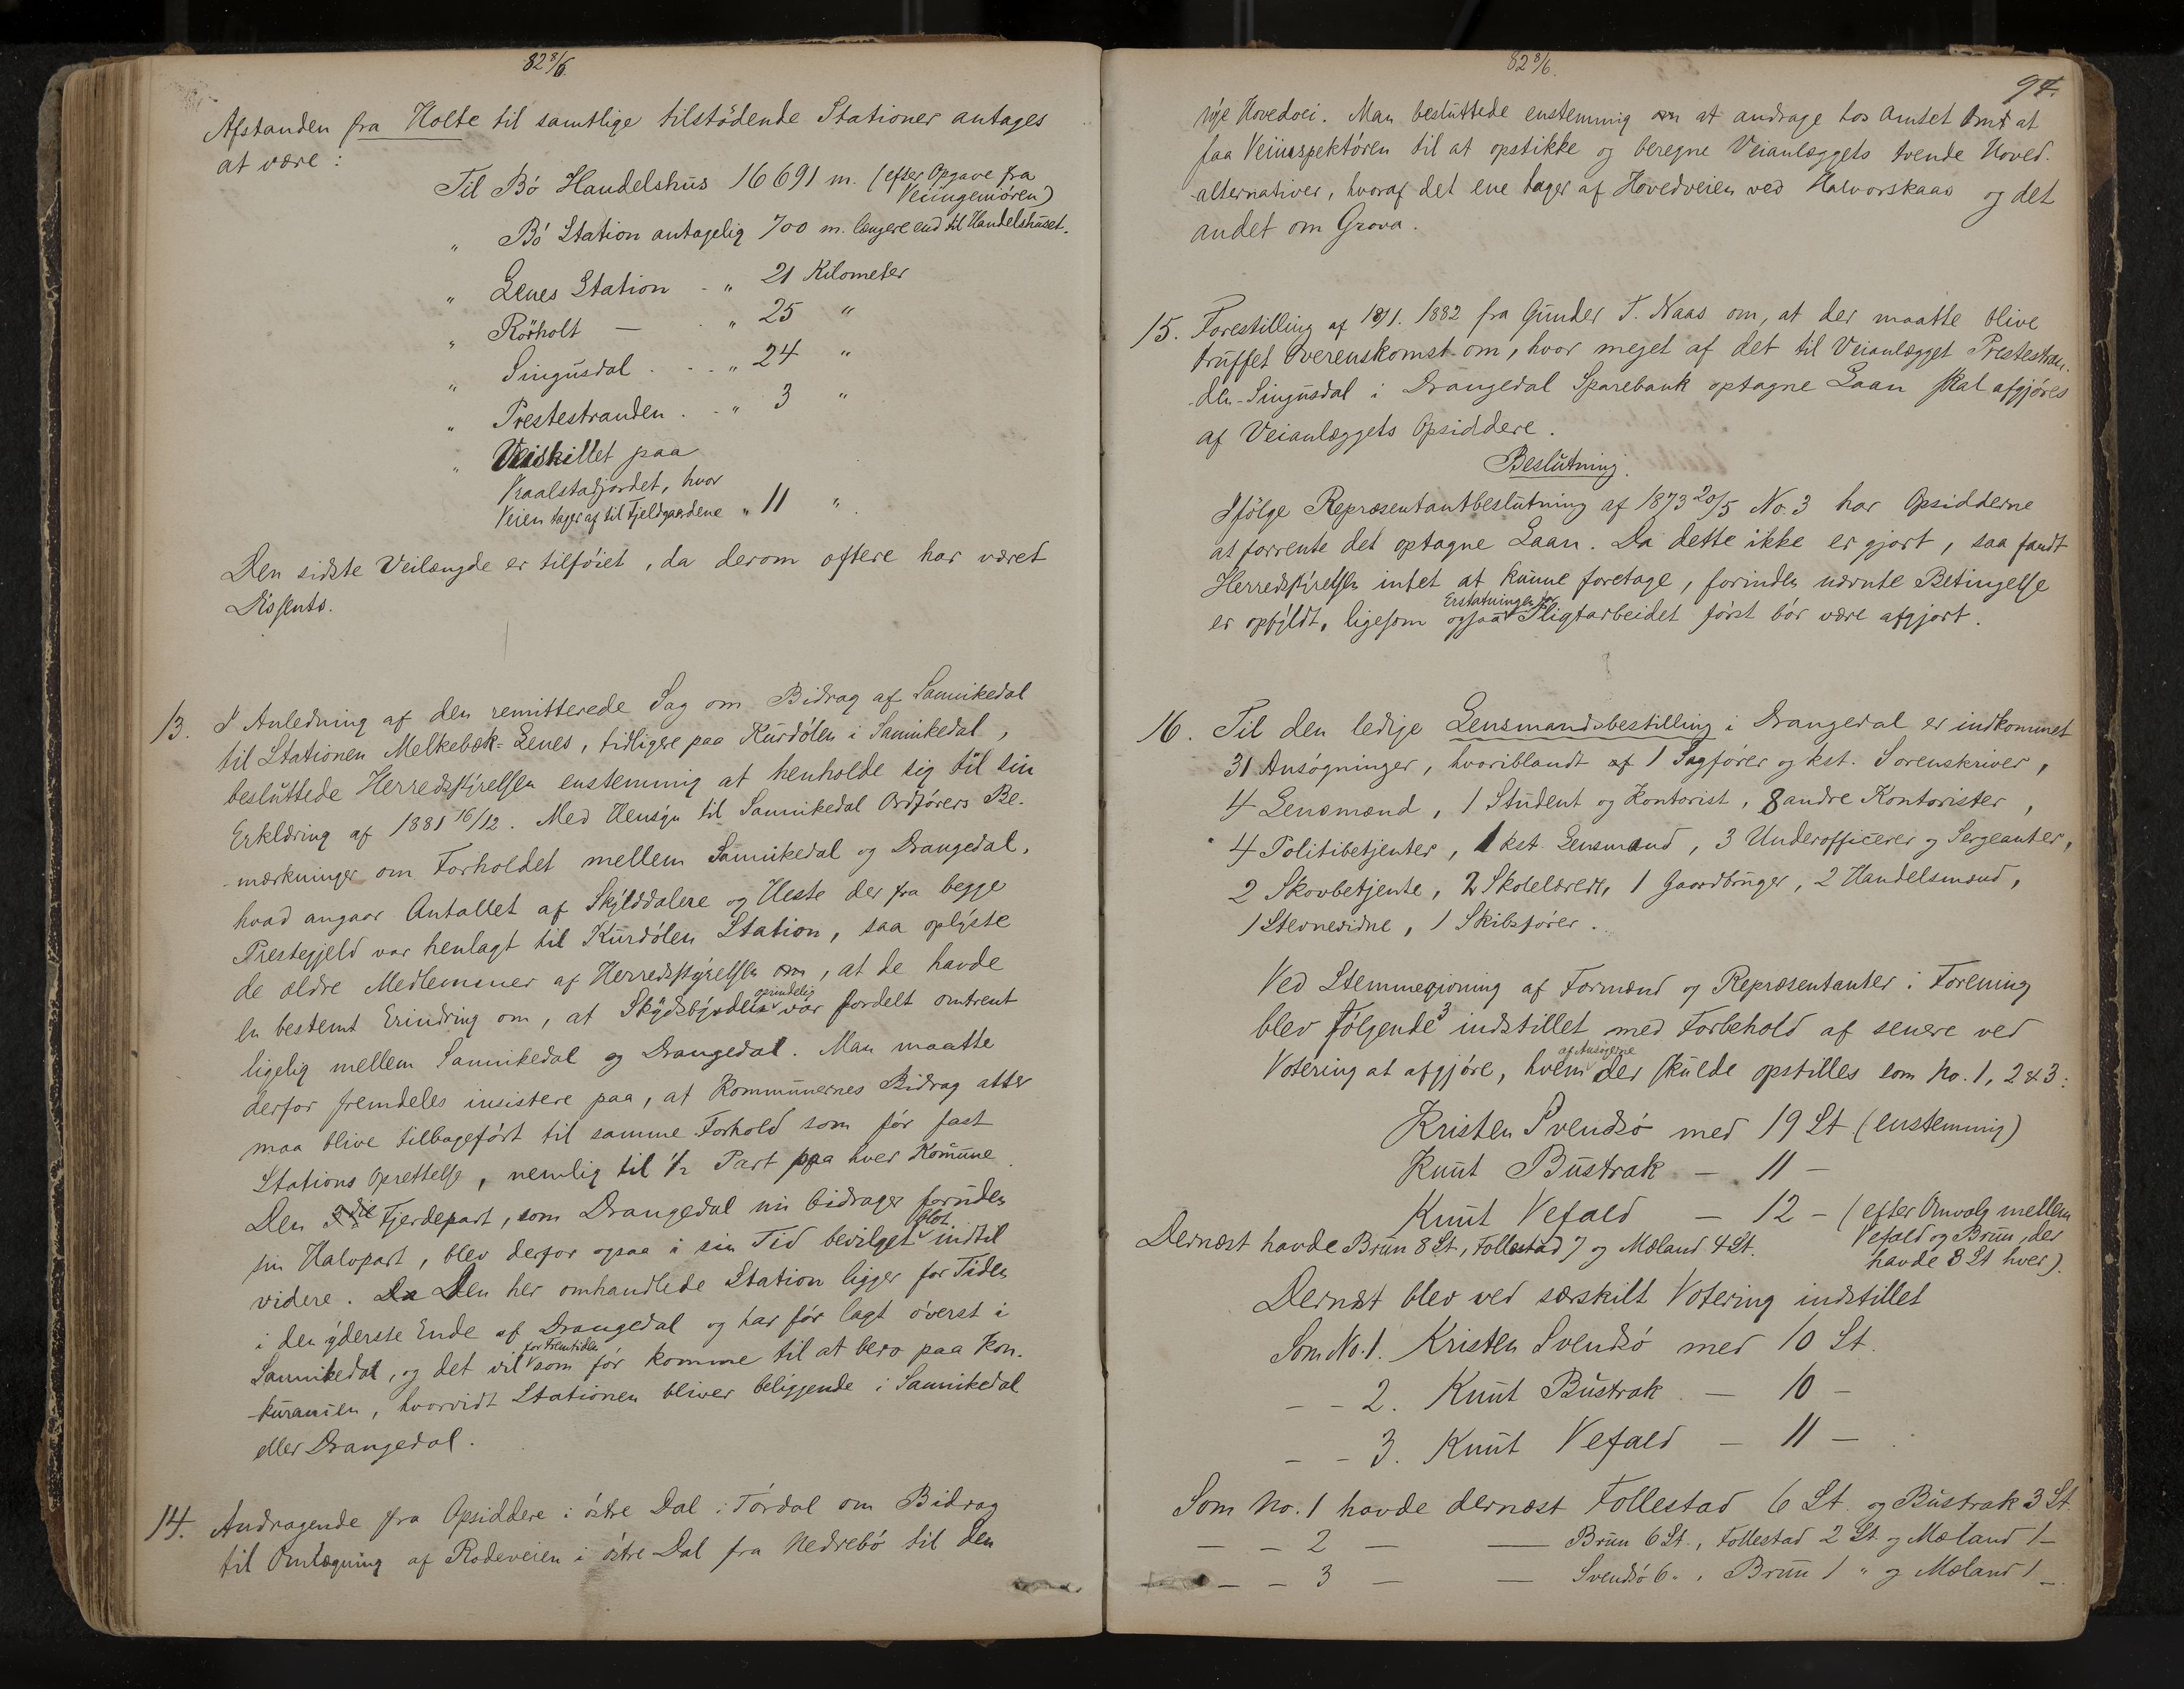 82 8/6.
Afstanden fra Holte til samtlige tilstödende Stationer antages
at være:
Til Bö Handelshus 16 691 m. (efter Opgave fra
Veiingeniören)
" Bö Station antagelig 700 m. længere end til Handelshuset.
" Lenes Station - " 21 Kilometer
" Rörholt — " 25 "
" Singusdal . - . " 24 "
" Prestestranden . - " 3 "
" Veiskillet paa
Kraalstadjordet, hvor
Veien tager af til Fjeldgaardene " 11 " .
Den sidste Veilængde er tilföiet, da derom oftere har været
Dissents.
13. I Anledning af den remitterede Sag om Bidrag af Sannikedal
til Stationen Melkebæk-Lenes, tidligere paa Kurdölen i Sannikedal,
besluttede Herredsstyrelsen enstemmig at henholde sig til sin
Erklæring af 1881 16/12. Med Hensyn til Sannikedal Ordförers Be-
mærkninger om Forholdet mellem Sannikedal og Drangedal,
hvad angaar Antallet af Skylddalere og Heste der fra begge
Prestegjeld var henlagt til Kurdölen Station, saa oplyste
de ældre Medlemmer af Herredsstyrelsen om, at de havde
en bestemt Erindring om, at Skydsbyrden oprindelig var fordelt omtrent
ligelig mellem Sannikedal og Drangedal. Man maatte
derfor fremdeles insistere paa, at Kommunernes Bidrag atter
maa blive tilbageført til samme Forhold som för fast
Stations Oprettelse, nemlig til 1/2 Part paa hver Komune.
Den Fjerdepart, som Drangedal nu bidrager foruden
sin Halvpart, blev derfor ogsaa i sin Tid bevilget blot indtil
videre. Da Den her omhandlede Station ligger for Tiden
i den yderste Ende af Drangedal og har för lagt överst i
Sannikedal, og det vil for Fremtiden som för komme til at bero paa Kon-
kurancen, hvorvidt Stationen bliver beliggende i Sannikedal
eller Drangedal.
14. Andragende fra Opsiddere i östre Dal i Tördal om Bidrag
til Omlægning af Rodeveien i östre Dal fra Nedrebö til den
82 8/6.
97.
nye Hovedvei. Man besluttede enstemmig om at andrage hos Amtet Omt at
faa Veiinspektören til at opstikke og beregne Veianlæggets tvende Hoved-
alternativer, hvoraf det ene tager af Hovedveien ved Halvorskaas og det
andet om Grova.
15. Forestilling af 18/1. 1882 fra Gunder T. Naas om, at der maatte blive
truffet Overenskomst om, hvor meget af det til Veianlægget Prestestran-
den-Singusdal i Drangedal Sparebank optagne Laan skal afgjöres
af Veianlæggets Opsiddere.
Beslutning.
Ifölge Repræsentantbeslutning af 1873 20/5 No. 3 har Opsidderne
at forrente det optagne Laan. Da dette ikke er gjort, saa fandt
Herredsstyrelsen intet at kunne foretage, forinden nævnte Betingelse
er opfyldt, ligesom ogsaa Erstatningen for Pligtarbeidet först bör være afgjort.
16. Til den ledige Lensmandsbestilling i Drangedal er indkommet
31 Ansögninger, hvoriblandt af 1 Sagförer og kst. Sorenskriver,
4 Lensmænd, 1 Student og Kontorist, 8 andre Kontorister,
4 Politibetjenter, 1 kst. Lensmand, 3 Underofficerer og Sergeanter,
2 Skovbetjente, 2 Skolelærere, 1 Gaardbruger, 2 Handelsmænd,
1 Stevnevidne, 1 Skibsförer.
Ved Stemmegivning af Formænd og Repræsentanter i Forening
blev fölgende 3 indstillet med Forbehold af senere ved
Votering at afgjöre, hvem af Ansögerne der skulde opstilles som No. 1, 2 & 3:
Kristen Svendsö med 19 St (enstemmig)
Knut Bustrak — 11 —
Knut Vefald — 12 — (efter Omvalg mellem
Vefald og Brun, der
havde 8 St hver).
Dernæst havde Brun 8 St., Follestad 7 og Mæland 4 St.
Dernæst blev ved særskilt Votering indstillet
Som No. 1. Kristen Svendsö med 10 St.
— — 2. Knut Bustrak — 10 —
— — 3. Knut Vefald — 11 —
Som No. 1 havde dernæst Follestad 6 St. og Bustrak 3 St.
— — 2 — — Brun 6 St., Follestad 2 St. og Mæland 1 —
— — 3 — — Svendsö 6 ", Brun 1 " og Mæland 1 —